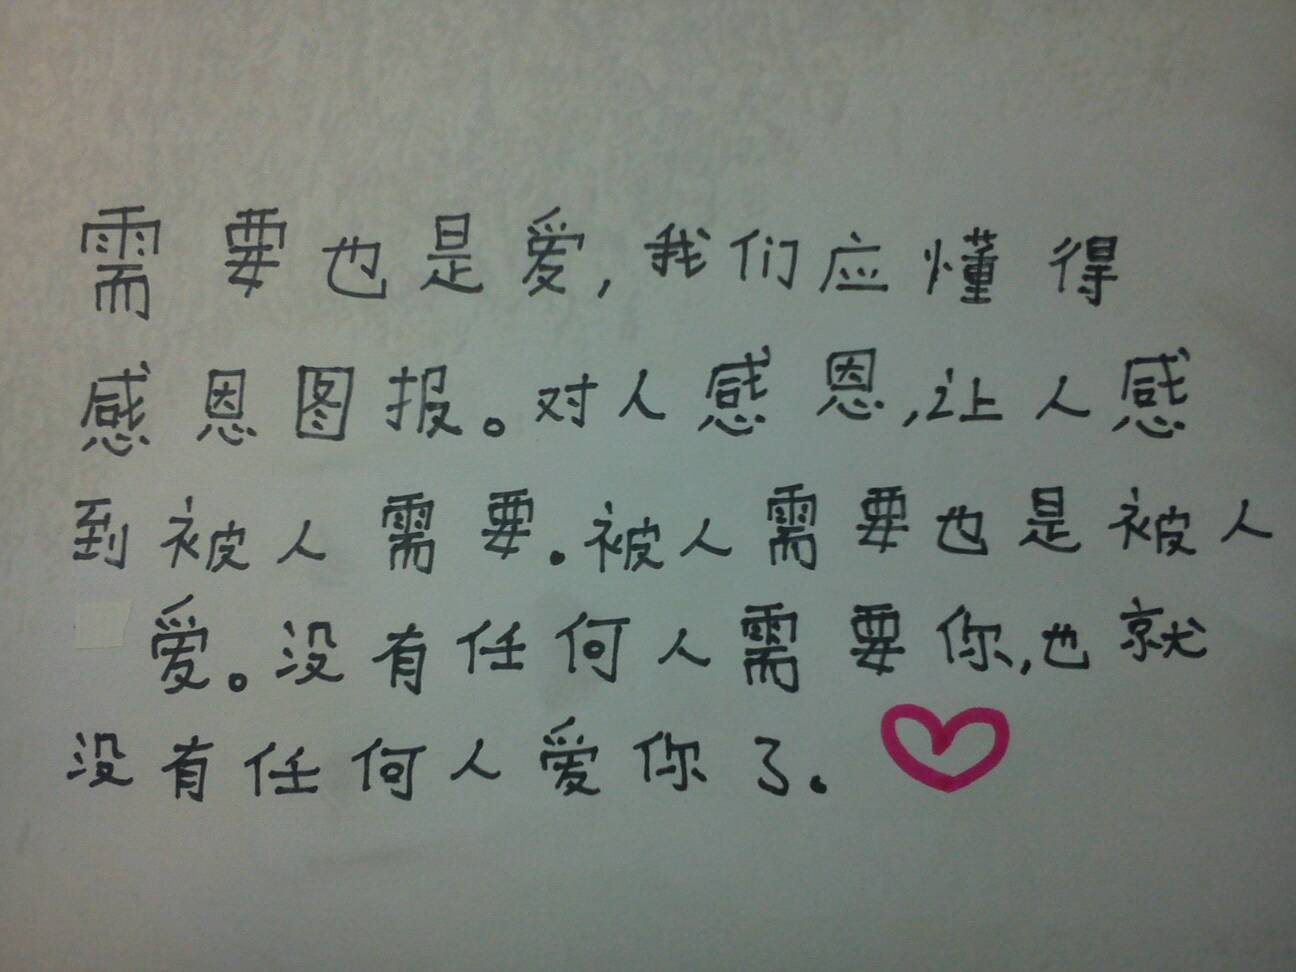 需要也是爱,我们应懂得
感恩图报。对人感恩,让人感
到被人需要.被人需要也是被人
爱。没有任何人需要你,也就
没有任何人爱你了.